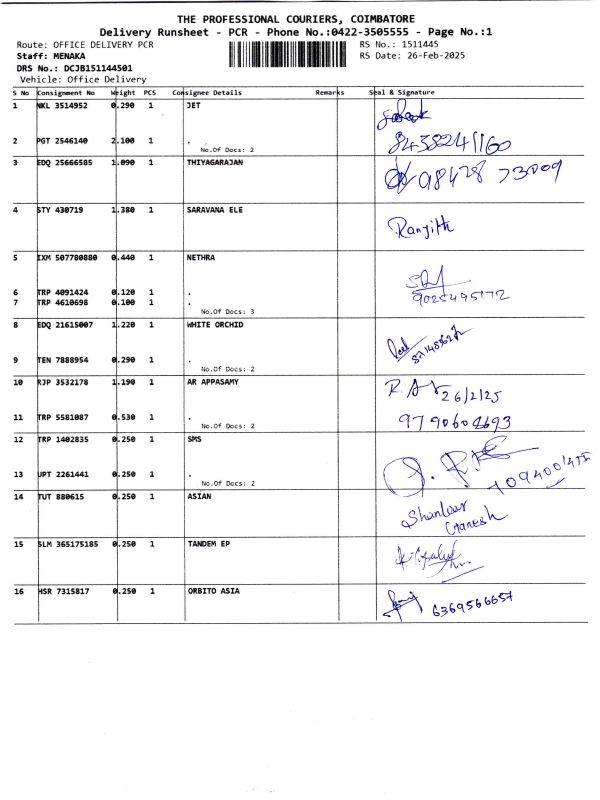 THE PROFESSIONAL COURIERS, COIMBATORE
Delivery Runsheet - PCR - Phone No.:0422-3505555 - Page No.:1
Route: OFFICE DELIVERY PCR
RS No.: 1511445
Staff: MENAKA
RS Date: 26-Feb-2025
DRS No.: DCJB151144501
Vehicle: Office Delivery
S No Consignment No Weight PCS Consignee Details Remarks Seal & Signature
1 NKL 3514952 0.290 1 JET
2 PGT 2546140 2.100 1 . 8438241160
No.Of Docs: 2
3 EDQ 25666585 1.090 1 THIYAGARAJAN 98428 73009
4 STY 430719 1.380 1 SARAVANA ELE Ranjith
5 IXM 507780880 0.440 1 NETHRA
6 TRP 4091424 0.120 1 .
7 TRP 4610698 0.100 1 . 9025495172
No.Of Docs: 3
8 EDQ 21615007 1.220 1 WHITE ORCHID
9 TEN 7888954 0.290 1 .
No.Of Docs: 2
10 RJP 3532178 1.190 1 AR APPASAMY 26/2/25
11 TRP 5581087 0.530 1 .
No.Of Docs: 2
12 TRP 1402835 0.250 1 SMS
13 UPT 2261441 0.250 1 .
No.Of Docs: 2
14 TUT 880615 0.250 1 ASIAN
Ganesh
15 SLM 365175185 0.250 1 TANDEM EP
16 HSR 7315817 0.250 1 ORBITO ASIA 6369566657